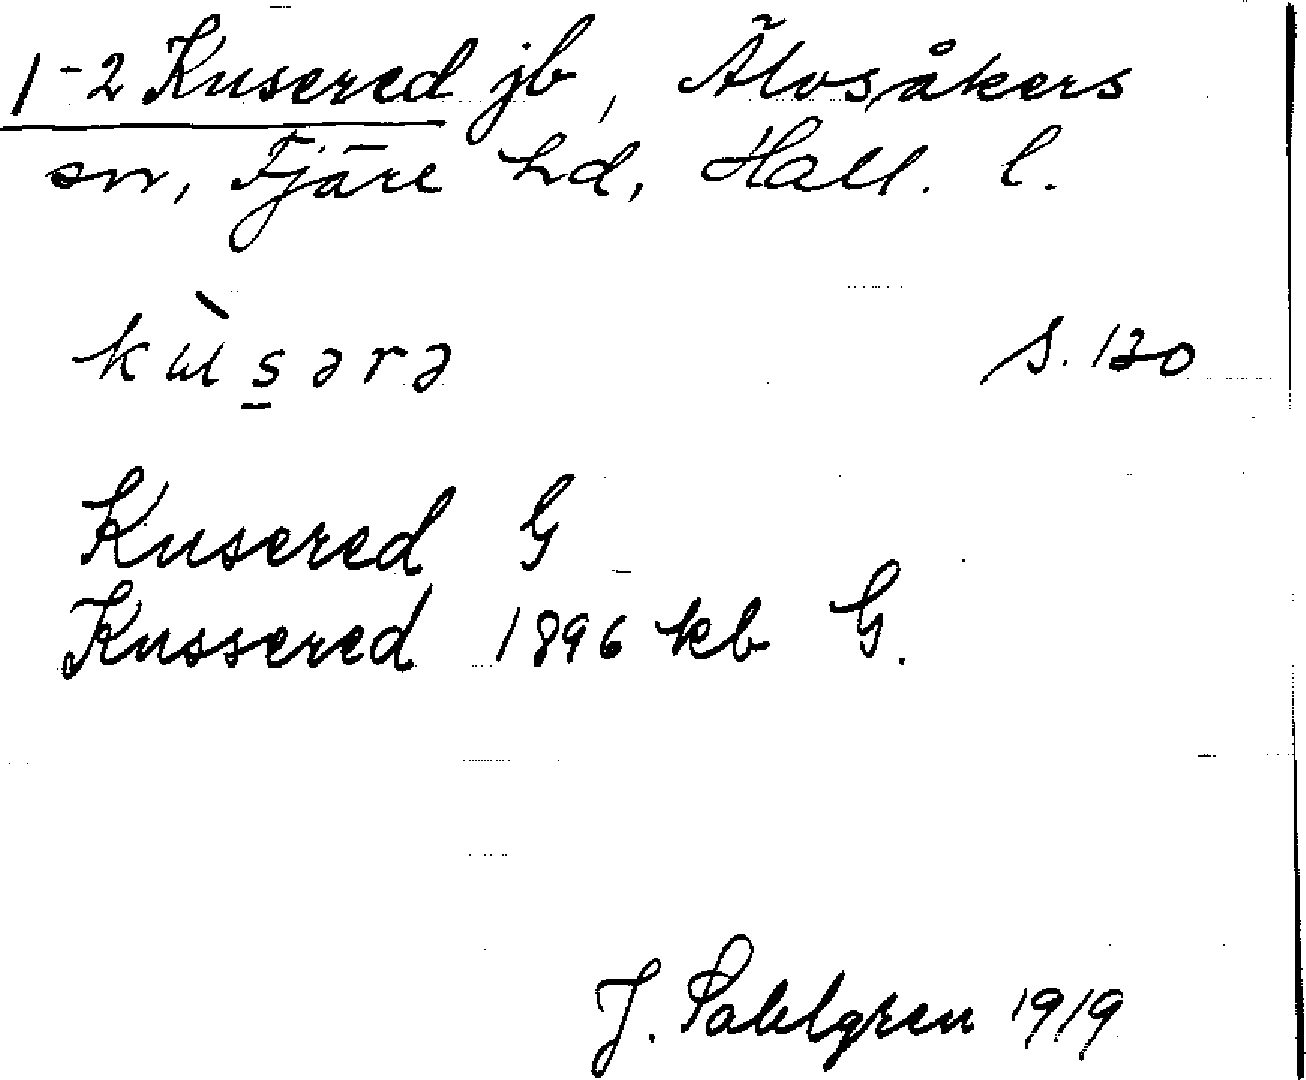 1-2 Kusered jb, Älvsåkers
sn, Fjäre hd, Hall. l.
kùsərə s. 130
Kusered G
Kussered 1896 kb G.
J. Sahlgren 1919